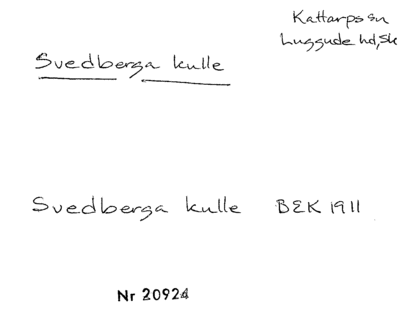 Kattarps sn
Luggude hd, Sk
Svedberga kulle
Svedberga kulle BEK 1911
Nr 20924